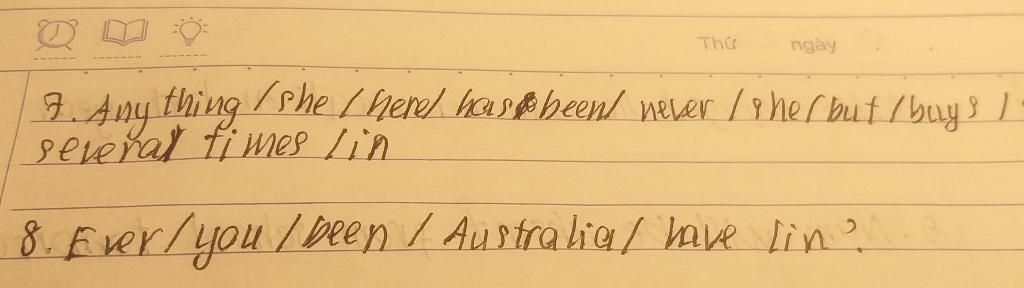 Thứ ngày
7. Any thing / she / here / has been / never / she / but / buys /
several times / in
8. Ever / you / been / Australia / have / in?